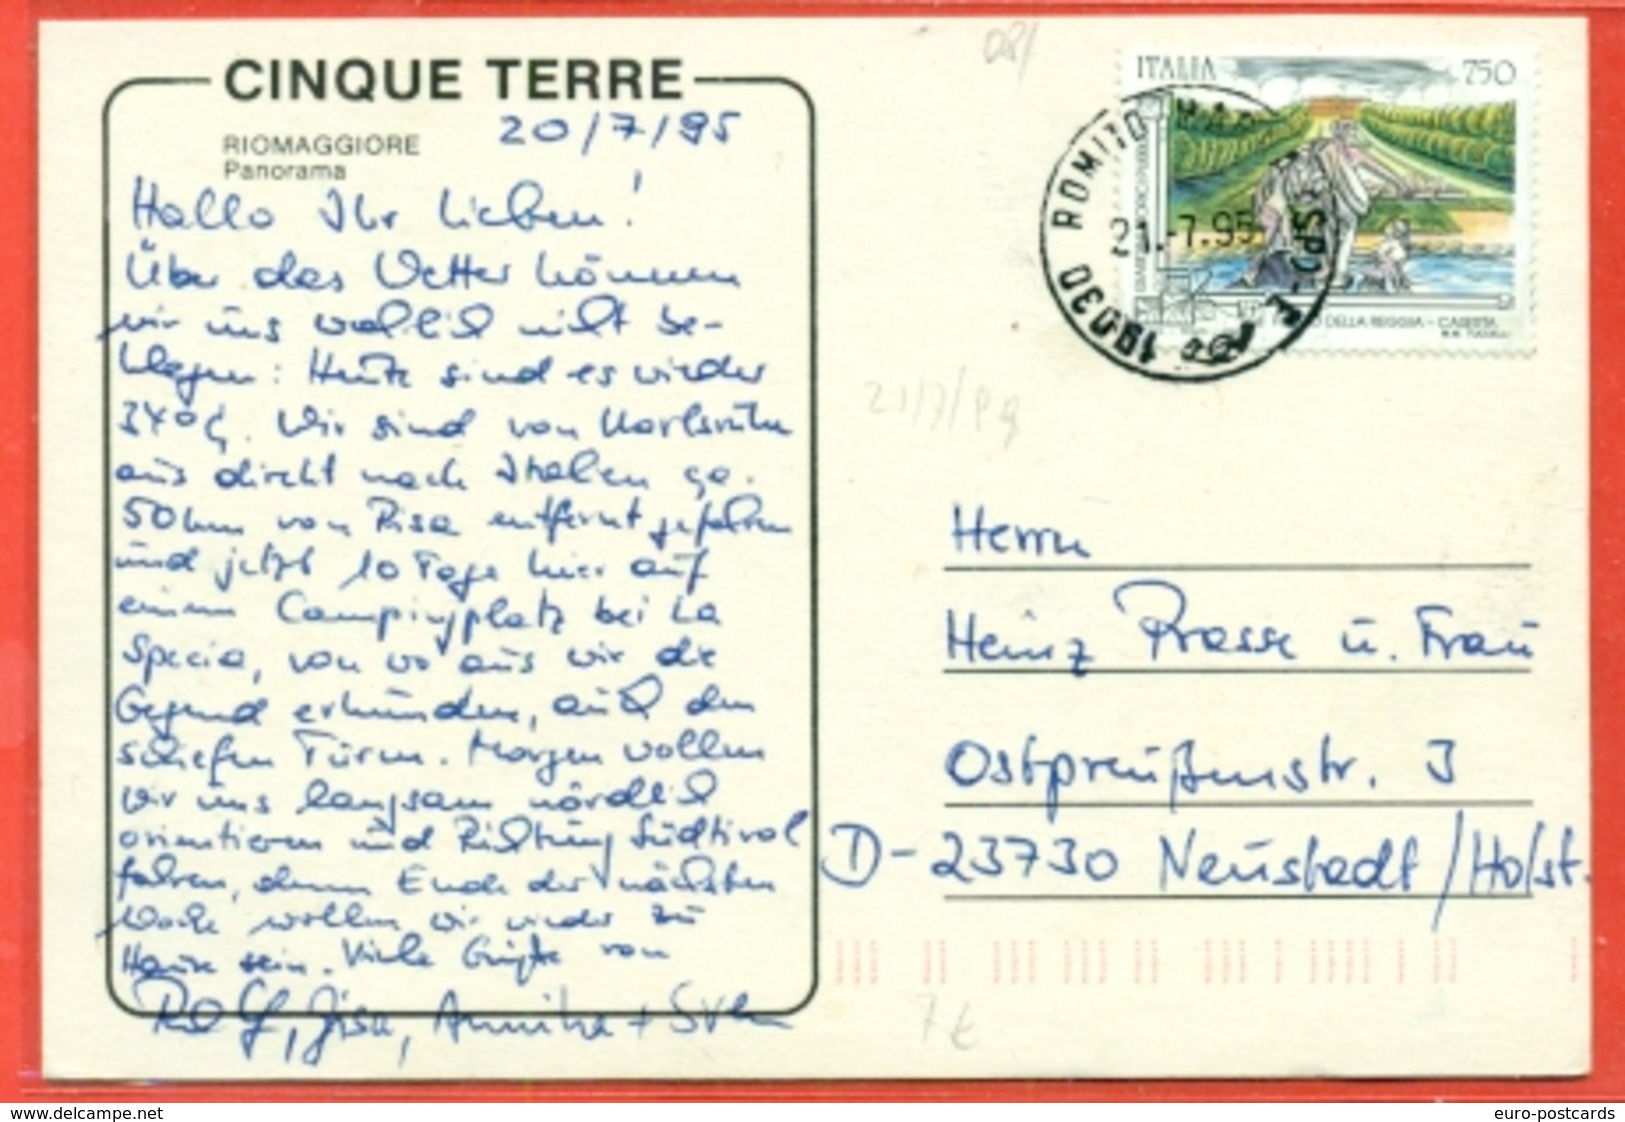 CINQUE TERRE
RIOMAGGIORE
Panorama
20/7/95
Hallo Ihr Lieben!
Über das Wetter können
wir uns wirklich nicht be-
klagen: Heute sind es wieder
34°C. Wir sind von Karlsruhe
aus direkt nach Italien ca.
50 km von Pisa entfernt gefahren
und jetzt 10 Tage hier auf
einem Campingplatz bei La
Specia, von wo aus wir die
Gegend erkunden, auch den
schiefen Turm. Morgen wollen
wir uns langsam nördlich
orientieren und Richtung Südtirol
fahren, denn Ende der nächsten
Woche wollen wir wieder zu
Hause sein. Viele Grüße von
Rolf, Gisa, Annika + Sven
ITALIA 750
ROMITO MAGRA
21.-7.95
19030
DELLA REGGIA - CASERTA
21/7/
Herrn
Heinz Prasse u. Frau
Ostpreußenstr. 3
D-23730 Neustadt/Holst.
7 t
www.delcampe.net
euro-postcards